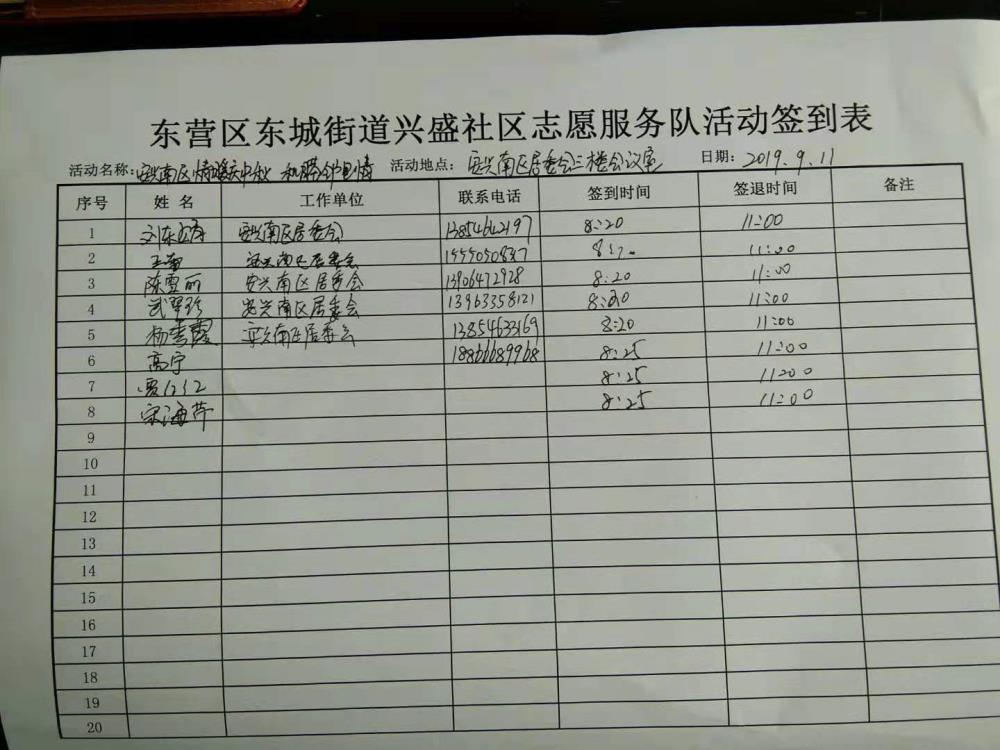 东营区东城街道兴盛社区志愿服务队活动签到表
活动名称：安兴南区情暖中秋 和谐邻里情 活动地点：安兴南区居委会三楼会议室 日期：2019.9.11
序号 姓名 工作单位 联系电话 签到时间 签退时间 备注
1 刘东海 安兴南区居委会 13854642197 8:20 11:00
2 王雪 安兴南区居委会 8:20 11:00
3 陈雪丽 安兴南区居委会 13906472928 8:20 11:00
4 武翠珍 安兴南区居委会 13963358121 8:20 11:00
5 杨秀霞 安兴南区居委会 13854633169 8:20 11:00
6 高宁 18866689968 8:25 11:00
7 8:25 11:00
8 宋海芹 8:25 11:00
9
10
11
12
13
14
15
16
17
18
19
20